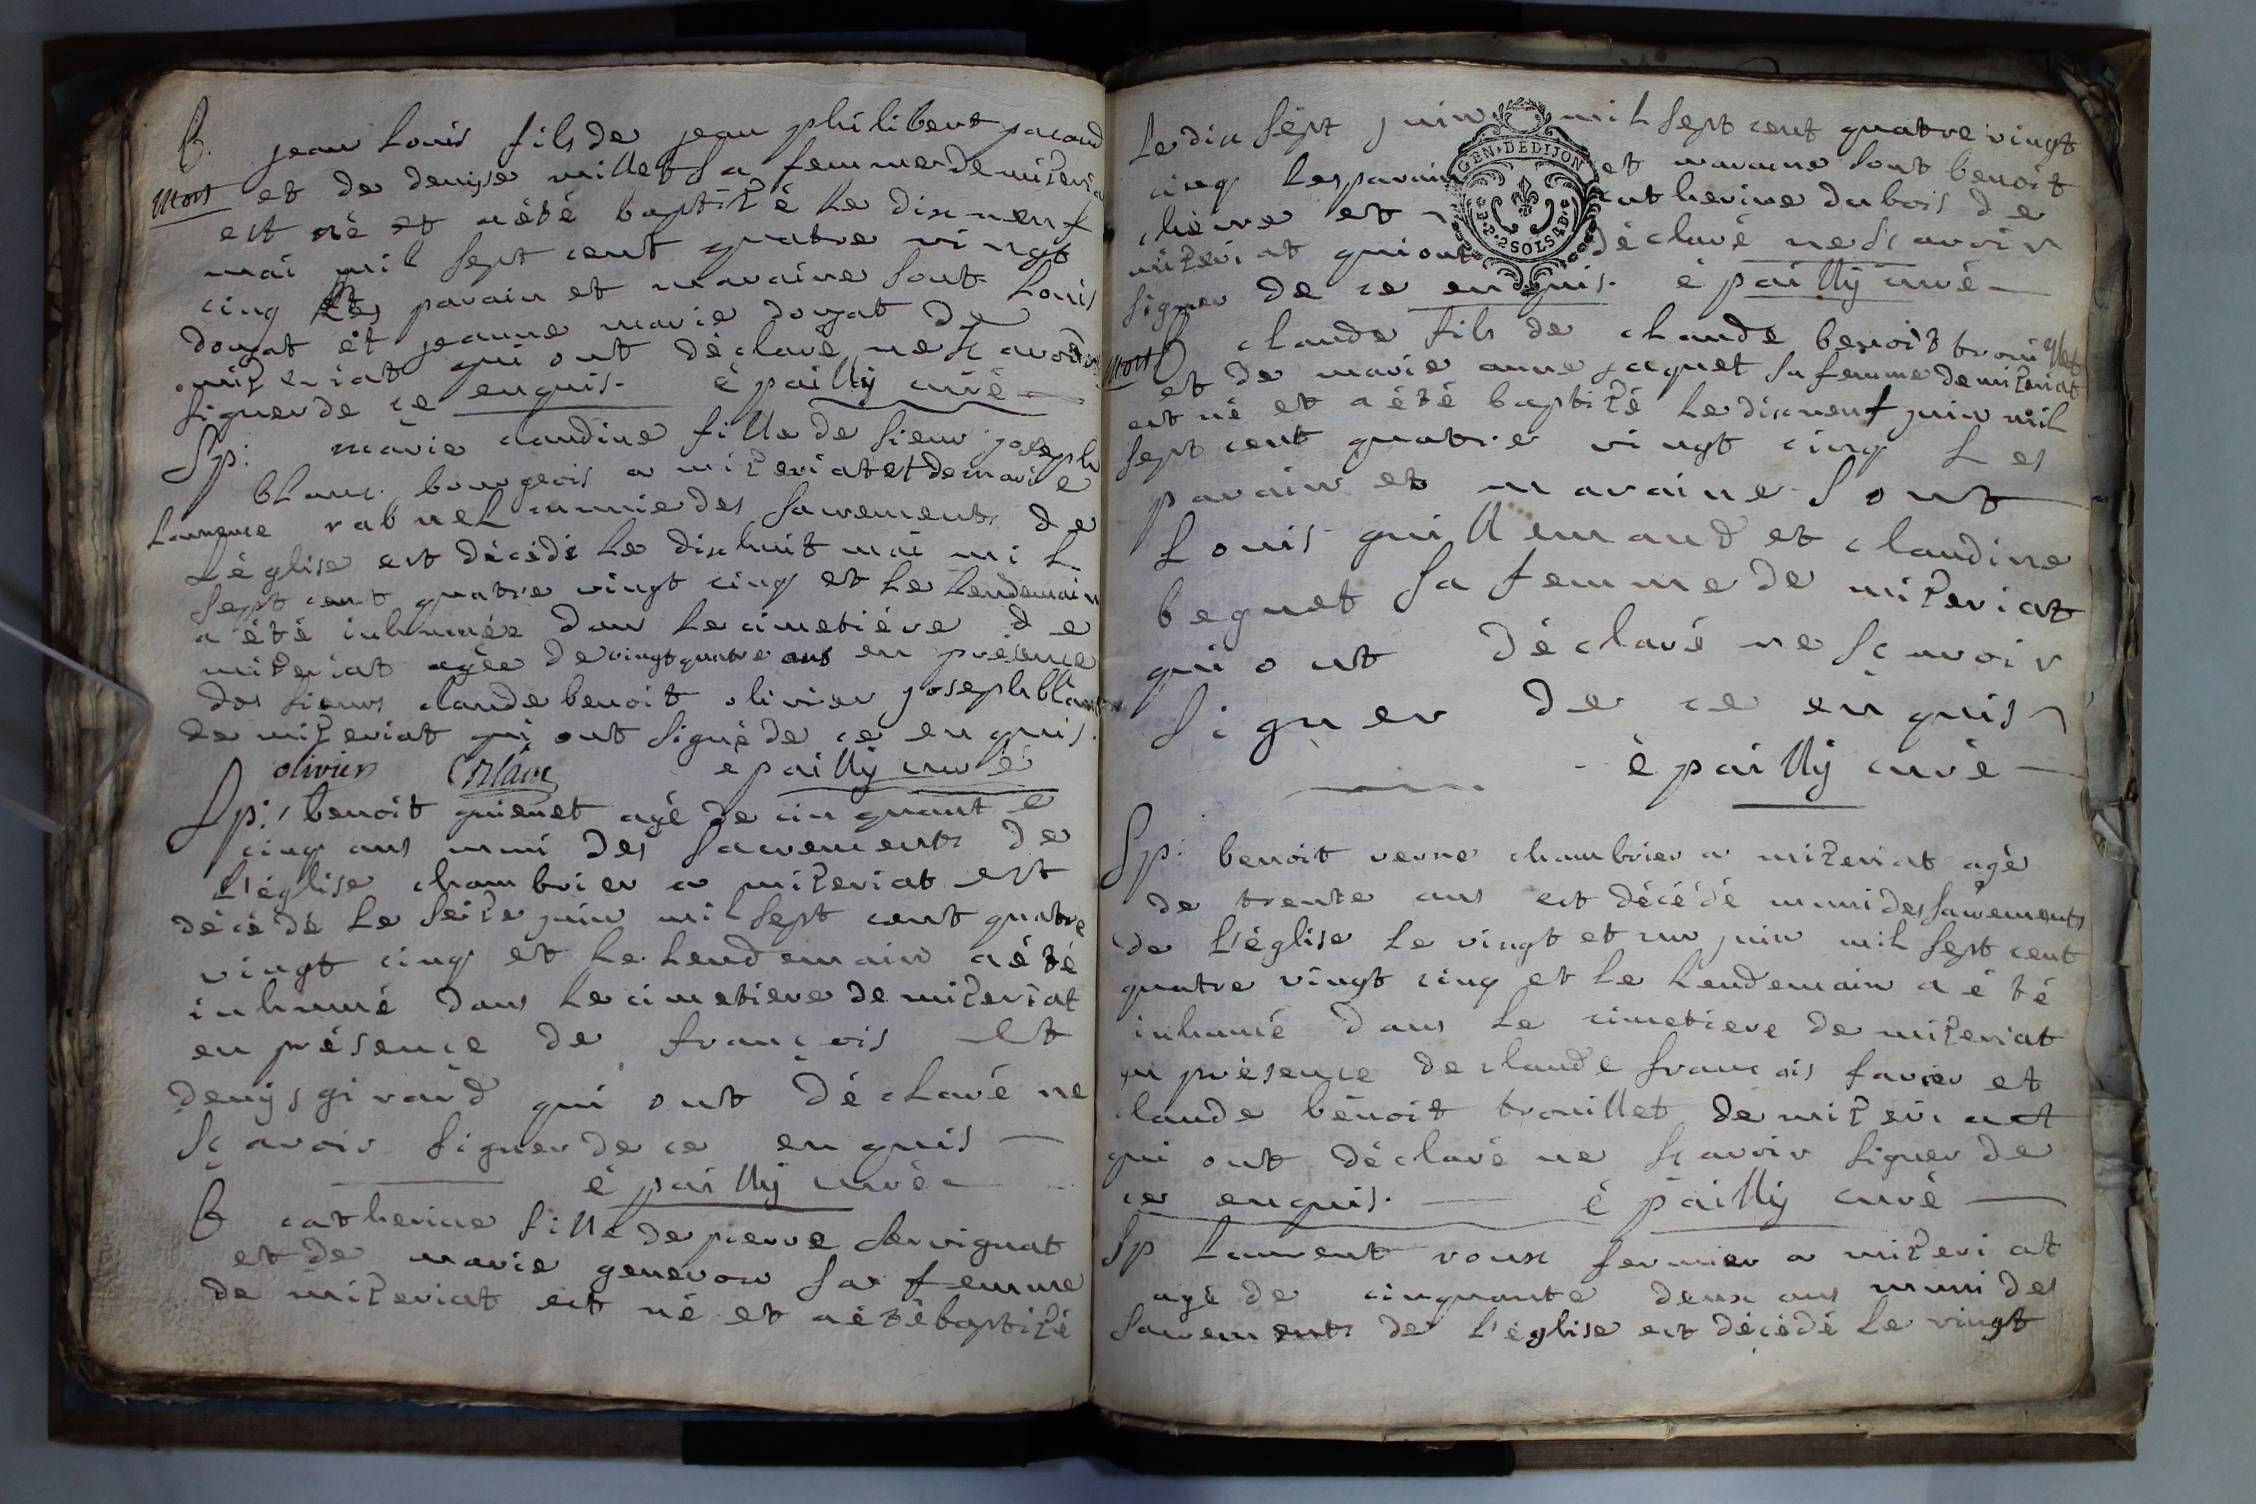 B. jean Louis fils de jean philibert pacoud
Mort et de denyse millet sa femme de miteriat
est né et a été baptité le dix neuf
mai mil sept cent quatre vingt
cinq les parain et maraine sont Louis
donjat et jeanne marie donjat de
miteriat qui ont déclaré ne sçavoir
signer de ce enquis. é pailly curé
Sp: marie claudine fille de sieur joseph
blanc bourgeois a miteriat et de marie
Laurence rabuel munie des sacrements de
L'église est décédé le dix huit mai mil
sept cent quatre vingt cinq et le Lendemain
a été inhumée dans le cimetiére de
miteriat agée de vingt quatre ans en présence
des sieurs claude benoit olivier joseph blanc
de miteriat qui ont signé de ce enquis.
olivier Blanc é pailly curé
Sp: benoit guienet agé de cinquante
cinq ans muni des sacrements de
L'église chambrier a miteriat est
décédé le seite juin mil sept cent quatre
vingt cinq et le Lendemain a été
inhumé dans le cimetiere de miteriat
en présence de françois et
denys girard qui ont déclaré ne
sçavoir signer de ce enquis
é pailly curé
B catherine fille de pierre servignat
et de marie genevon sa femme
de miteriat est né et a été baptité
Le dix sept juin mil sept cent quatre vingt
GEN·DEDIJON
cinq Les parain et maraine sont benoit
et catherine dubois de
2·SOLS 4·D
miteriat qui ont déclaré ne sçavoir
signer de ce enquis. é pailly curé
Mort B claude fils de claude benoit trouillet
et de marie anne jaquet sa femme de miteriat
est né et a été baptité le dix neuf juin mil
sept cent quatre vingt cinq Les
parain et maraine sont
Louis guillemaud et claudine
beguet sa femme de miteriat
qui ont déclaré ne sçavoir
signer de ce enquis
é pailly curé
Sp: benoit verne chambrier a miteriat agé
de trente ans est décédé muni des sacrements
de L'église le vingt et un juin mil sept cent
quatre vingt cinq et le Lendemain a été
inhumé dans le cimetiere de miteriat
en présence de claude françois favier et
claude bénoit trouillet de miteriat
qui ont déclaré ne sçavoir signer de
ce enquis. é pailly curé
Sp Laurent roux fermier a miteriat
agé de cinquante deux ans muni des
sacrements de L'église est décédé le vingt